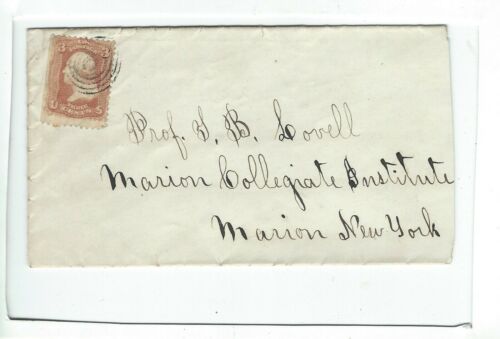 3 3
U S
Prof. S. B. Lovell
Marion Collegiate Institute
Marion New York